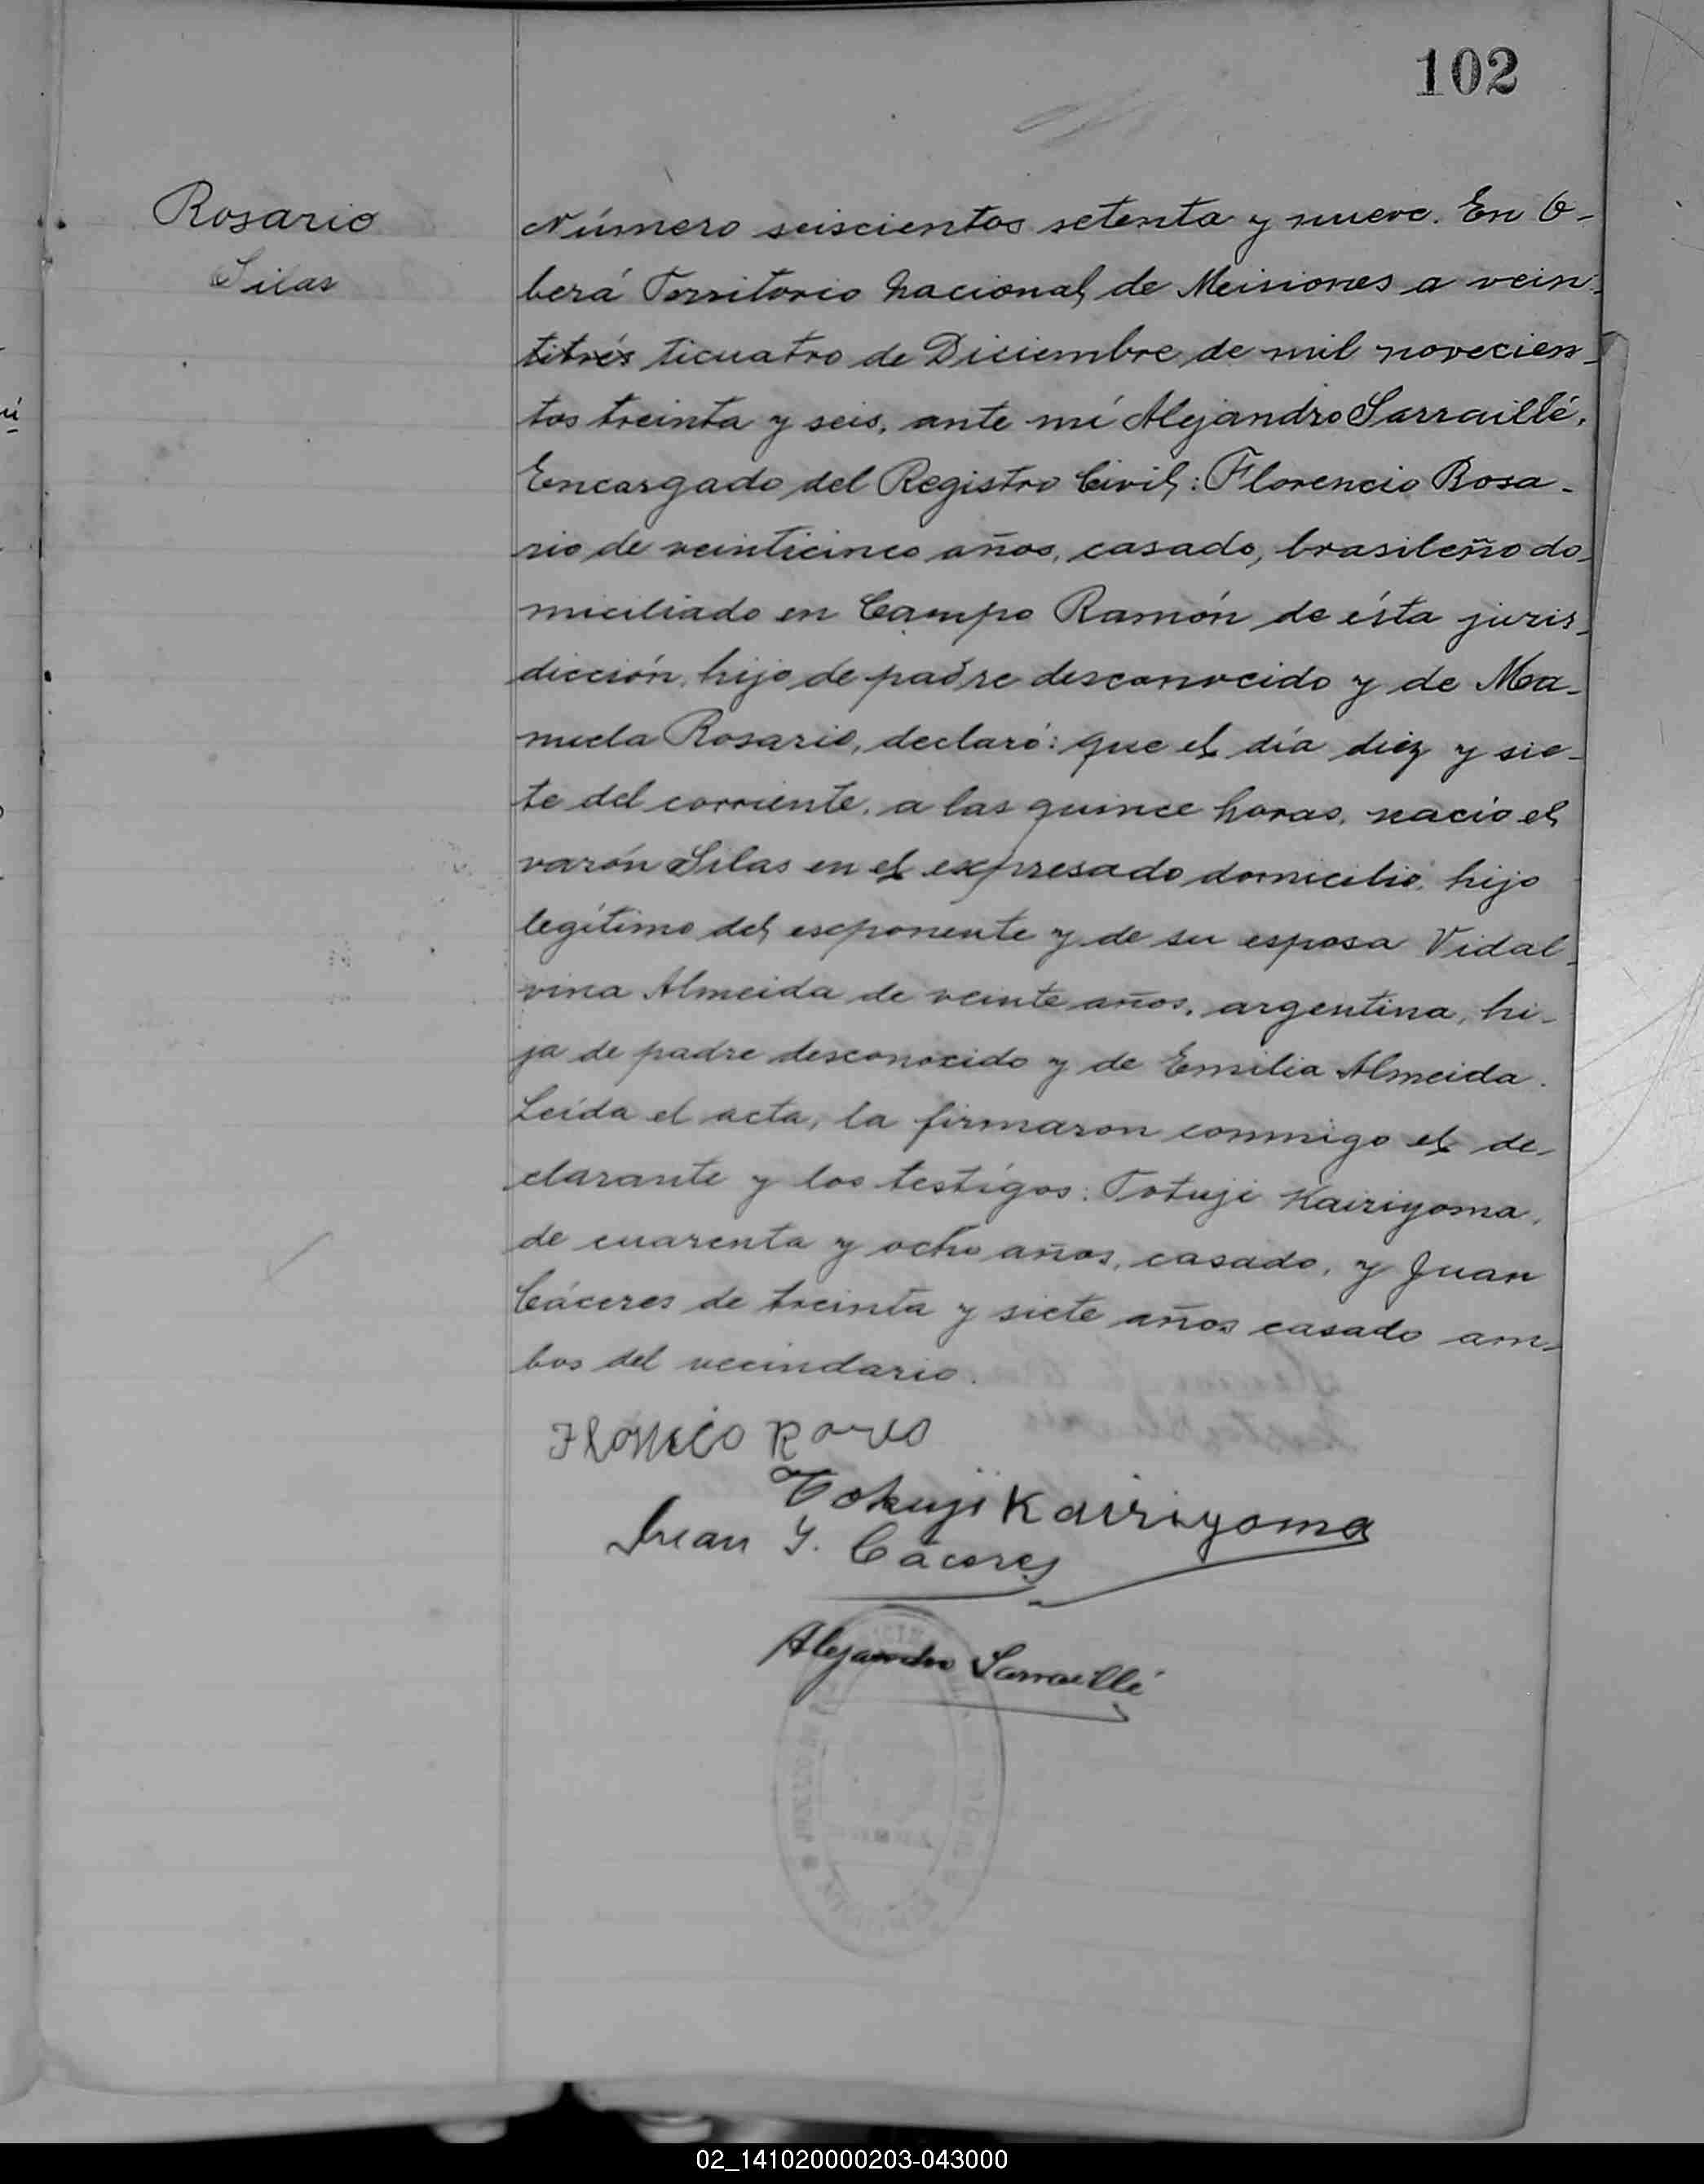 102
Rosario
Silas
Número seiscientos setenta y nueve. En O-
berá Territorio Nacional de Meisiones a vein-
titrés ticuatro de Diciembre de mil novecien-
tos treinta y seis, ante mí Alejandro Sarraillé,
Encargado del Registro Civil: Florencio Rosa-
rio de veinticinco años, casado, brasileño do-
miciliado en Campo Ramón de ésta juris-
dicción, hijo de padre desconocido y de Ma-
nuela Rosario, declaró: que el día diez y sie-
te del corriente, a las quince horas, nació el
varón Silas en el expresado domicilio, hijo
legítimo del exponente y de su esposa Vidal-
vina Almeida de veinte años, argentina, hi-
ja de padre desconocido y de Emilia Almeida.
Leída el acta, la firmaron conmigo el de-
clarante y los testigos: Totuji Kairiyoma,
de cuarenta y ocho años, casado, y Juan
Cáceres de treinta y siete años casado am-
bos del vecindario.
Tokuji Kairiyoma
Juan Y. Cáceres
Alejandro Sarraillé
02_141020000203-043000